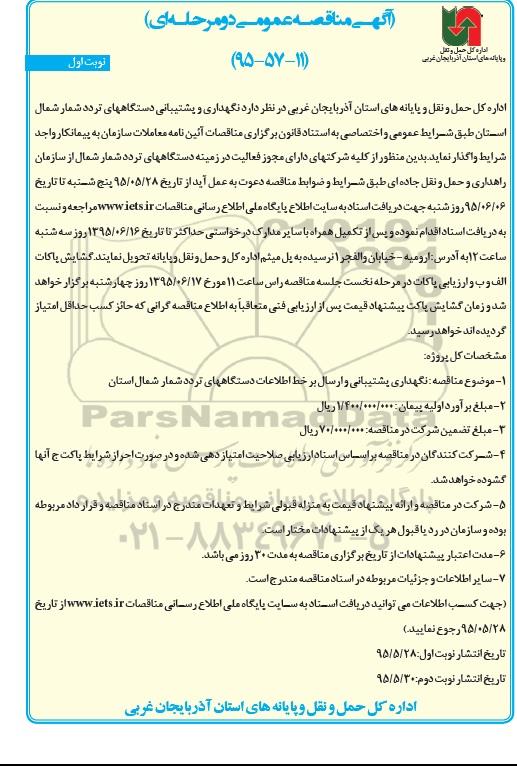 (آگهی مناقصه عمومی دو مرحله ای)
(۱۱-۵۷-۹۵)
نوبت اول
اداره کل حمل و نقل
و پایانه های استان آذربایجان غربی
اداره کل حمل و نقل و پایانه های استان آذربایجان غربی در نظر دارد نگهداری و پشتیبانی دستگاههای تردد شمار شمال
استان طبق شرایط عمومی و اختصاصی به استناد قانون برگزاری مناقصات آئین نامه معاملات سازمان به پیمانکار واجد
شرایط واگذار نماید.بدین منظور از کلیه شرکتهای دارای مجوز فعالیت در زمینه دستگاههای تردد شمار شمال از سازمان
راهداری و حمل و نقل جاده ای طبق شرایط و ضوابط مناقصه دعوت به عمل آید از تاریخ ۹۵/۰۵/۲۸ پنج شنبه تا تاریخ
۹۵/۰۶/۰۶ روز شنبه جهت دریافت اسناد به سایت اطلاع پایگاه ملی اطلاع رسانی مناقصات www.iets.ir مراجعه و نسبت
به دریافت اسناد اقدام نموده و پس از تکمیل همراه با سایر مدارک درخواستی حداکثر تا تاریخ ۱۳۹۵/۰۶/۱۶ روز سه شنبه
ساعت ۱۲ به آدرس : ارومیه - خیابان والفجر ۱ نرسیده به پل میثم اداره کل و حمل و نقل و پایانه تحویل نمایند.گشایش پاکات
الف و ب و ارزیابی پاکات در مرحله نخست جلسه مناقصه راس ساعت ۱۱ مورخ ۱۳۹۵/۰۶/۱۷ روز چهارشنبه برگزار خواهد
شد و زمان گشایش پاکت پیشنهاد قیمت پس از ارزیابی فنی متعاقباً به اطلاع مناقصه گرانی که حائز کسب حداقل امتیاز
گردیده اند خواهد رسید.
مشخصات کل پروژه:
۱- موضوع مناقصه : نگهداری پشتیبانی و ارسال بر خط اطلاعات دستگاههای تردد شمار شمال استان
۲- مبلغ برآورد اولیه پیمان : ۱/۴۰۰/۰۰۰/۰۰۰ ریال
۳- مبلغ تضمین شرکت در مناقصه: ۷۰/۰۰۰/۰۰۰ ریال
۴- شرکت کنندگان در مناقصه بر اساس اسناد ارزیابی صلاحیت امتیاز دهی شده و در صورت احراز شرایط پاکت ج آنها
گشوده خواهد شد.
۵- شرکت در مناقصه و ارائه پیشنهاد قیمت به منزله قبولی شرایط و تعهدات مندرج در اسناد مناقصه و قرار داد مربوطه
بوده و سازمان در رد یا قبول هر یک از پیشنهادات مختار است.
۶- مدت اعتبار پیشنهادات از تاریخ برگزاری مناقصه به مدت ۳۰ روز می باشد.
۷- سایر اطلاعات و جزئیات مربوطه در اسناد مناقصه مندرج است.
(جهت کسب اطلاعات می توانید دریافت اسناد به سایت پایگاه ملی اطلاع رسانی مناقصات www.iets.ir از تاریخ
۹۵/۰۵/۲۸ رجوع نمایید.)
تاریخ انتشار نوبت اول: ۹۵/۵/۲۸
تاریخ انتشار نوبت دوم: ۹۵/۵/۳۰
اداره کل حمل و نقل و پایانه های استان آذربایجان غربی
ParsNamadData
پایگاه اطلاع رسانی مناقصه و مزایده
۰۲۱-۸۸۳۴۹۶۷۰-۵